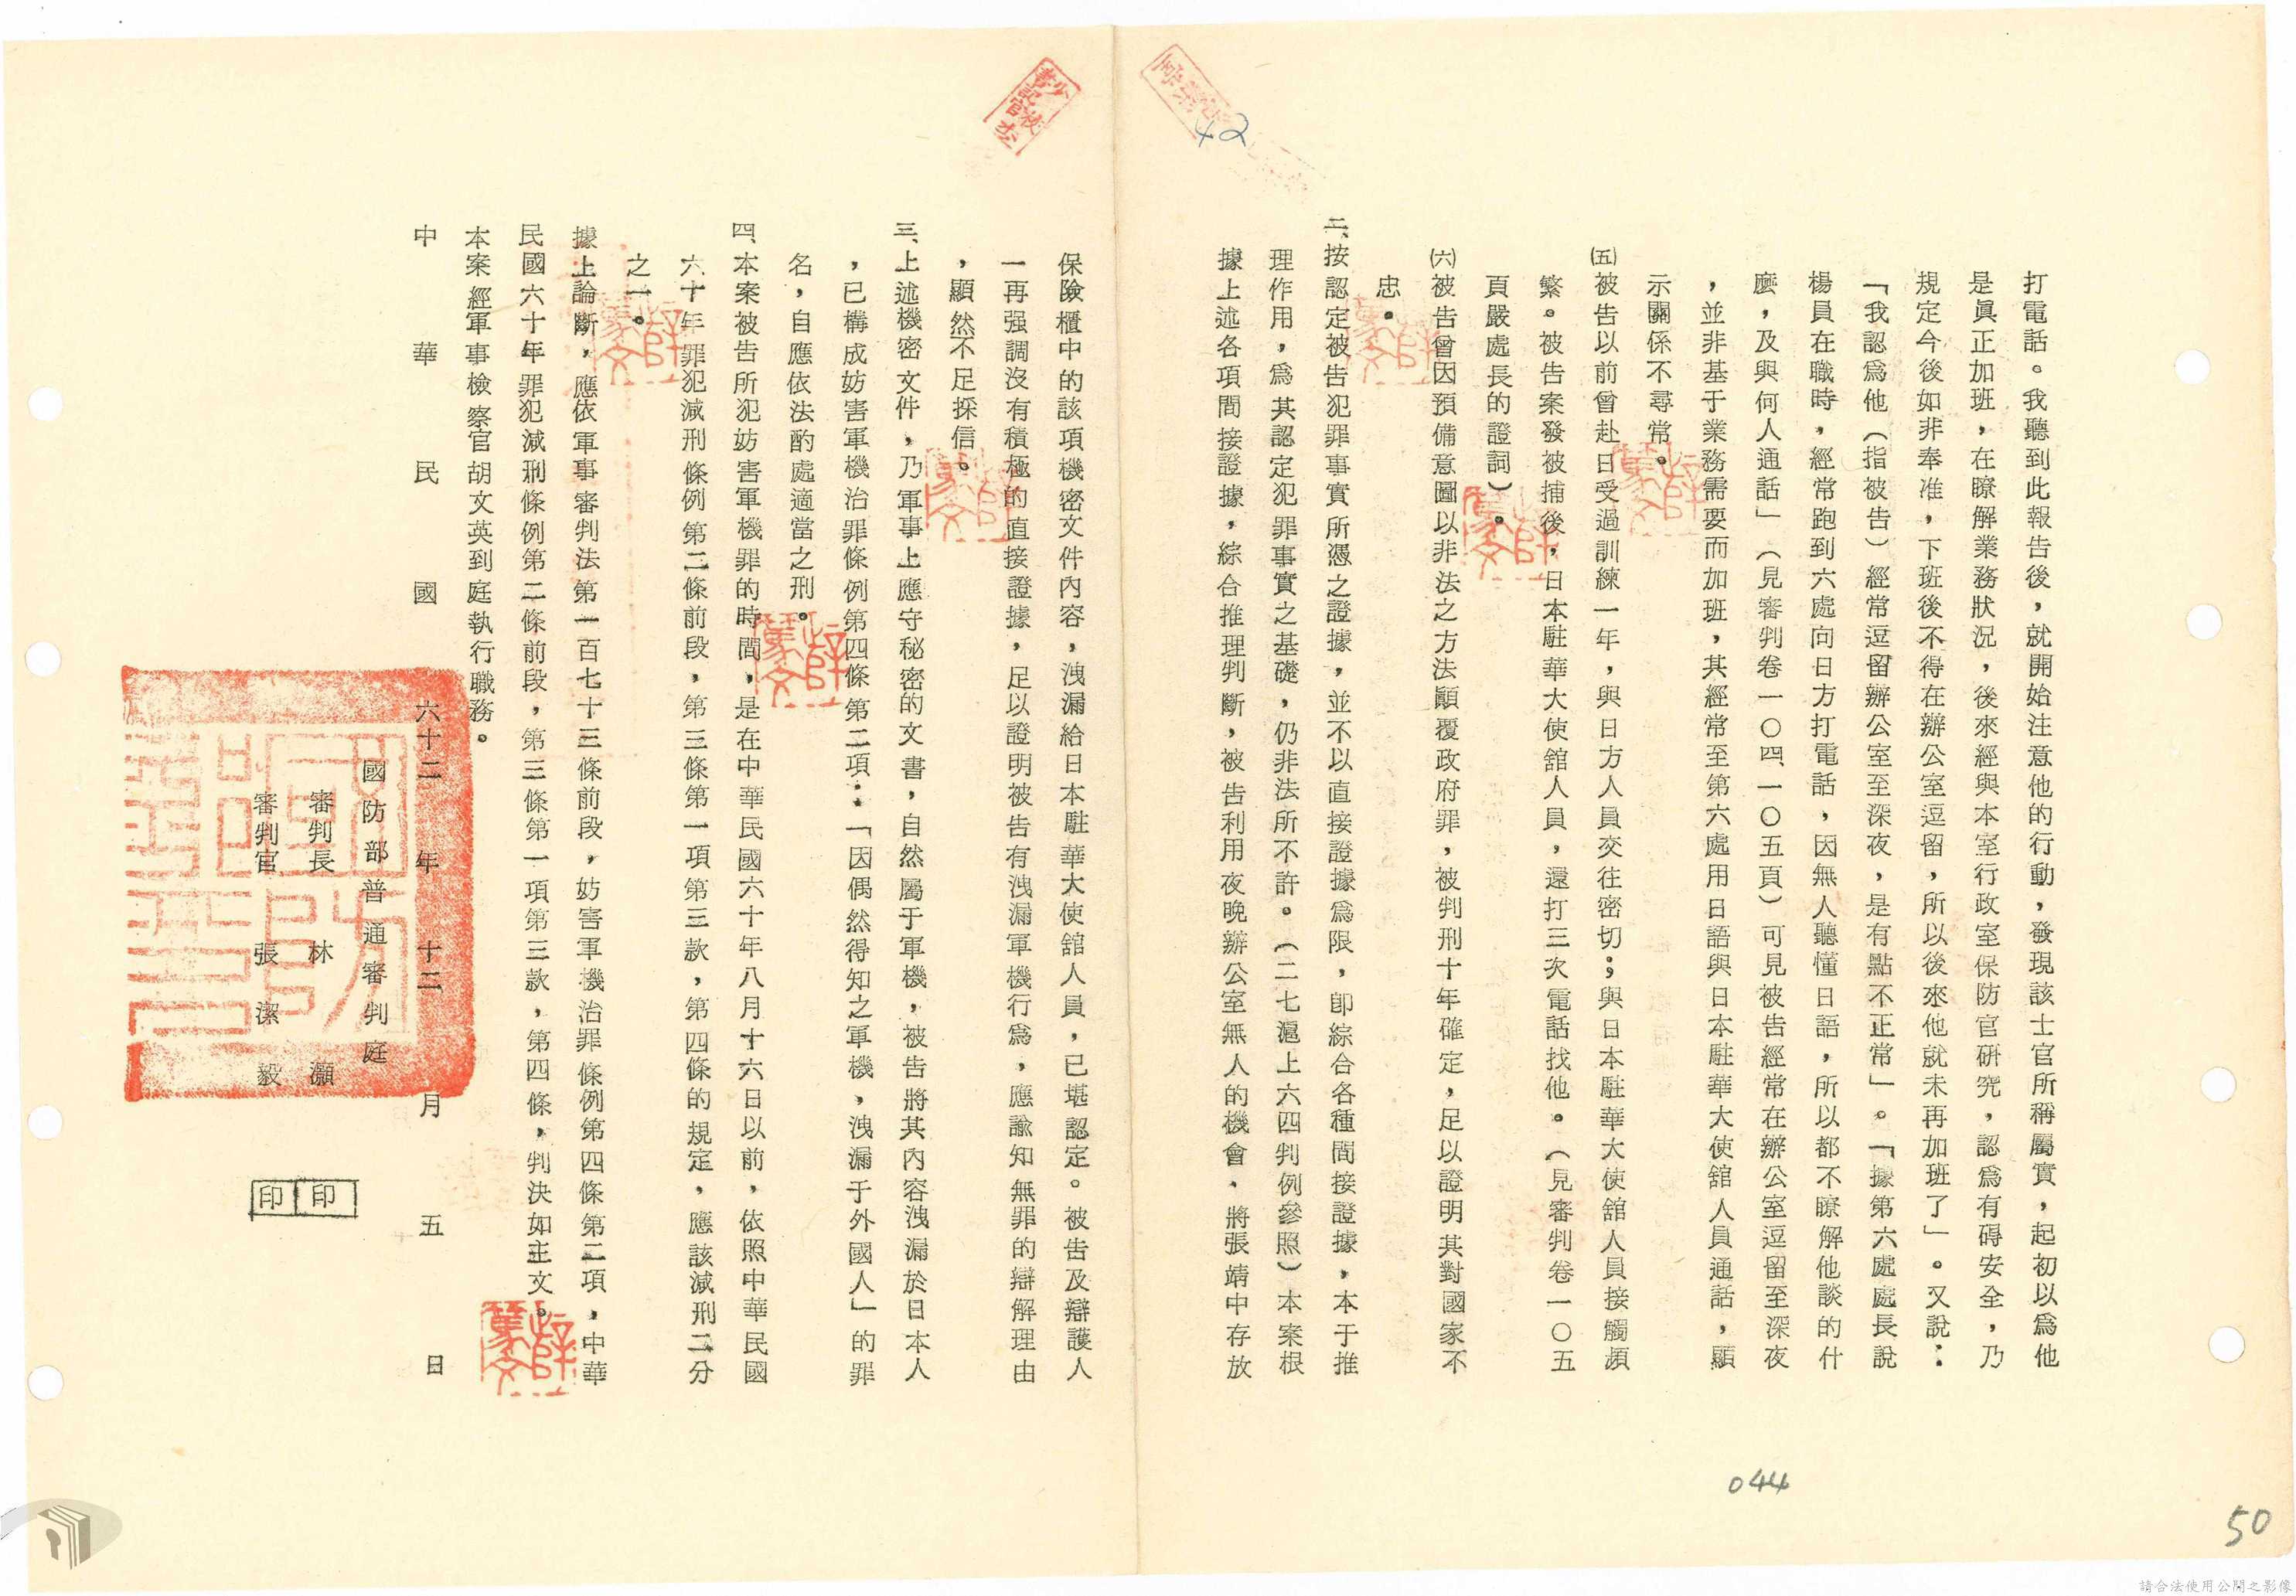 打電話。我聽到此報告後，就開始注意他的行動，發現該士官所稱屬實，起初以爲他
是眞正加班，在瞭解業務狀況，後來經與本室行政室保防官研究，認爲有碍安全，乃
規定今後如非奉准，下班後不得在辦公室逗留，所以後來他就未再加班了」。又說：
「我認爲他（指被告）經常逗留辦公室至深夜，是有點不正常」。「據第六處處長說
楊員在職時，經常跑到六處向日方打電話，因無人聽懂日語，所以都不瞭解他談的什
麽，及與何人通話」（見審判卷一〇四、一〇五頁）可見被告經常在辦公室逗留至深夜
，並非基于業務需要而加班，其經常至第六處用日語與日本駐華大使舘人員通話，顯
示關係不尋常。
㈤被告以前曾赴日受過訓練一年，與日方人員交往密切；與日本駐華大使舘人員接觸頻
繁。被告案發被捕後，日本駐華大使舘人員，還打三次電話找他。（見審判卷一〇五
頁嚴處長的證詞）。
㈥被告曾因預備意圖以非法之方法顚覆政府罪，被判刑十年確定，足以證明其對國家不
忠。
二、按認定被告犯罪事實所憑之證據，並不以直接證據爲限，卽綜合各種間接證據，本于推
理作用，爲其認定犯罪事實之基礎，仍非法所不許。（二七滬上六四判例參照）本案根
據上述各項間接證據，綜合推理判斷，被告利用夜晚辦公室無人的機會，將張靖中存放
42
保險櫃中的該項機密文件內容，洩漏給日本駐華大使舘人員，已堪認定。被告及辯護人
一再强調沒有積極的直接證據，足以證明被告有洩漏軍機行爲，應諭知無罪的辯解理由
，顯然不足採信。
三、上述機密文件，乃軍事上應守秘密的文書，自然屬于軍機，被告將其內容洩漏於日本人
，已構成妨害軍機治罪條例第四條第二項：「因偶然得知之軍機，洩漏于外國人」的罪
名，自應依法酌處適當之刑。
四、本案被告所犯妨害軍機罪的時間，是在中華民國六十年八月十六日以前，依照中華民國
六十年罪犯減刑條例第二條前段，第三條第一項第三款，第四條的規定，應該減刑二分
之一。
據上論斷，應依軍事審判法第一百七十三條前段，妨害軍機治罪條例第四條第二項，中華
民國六十年罪犯減刑條例第二條前段，第三條第一項第三款，第四條，判決如主文。
本案經軍事檢察官胡文英到庭執行職務。
中華民國六十二年十二月五日
國防部普通審判庭
審判長 林 灝 印
審判官 張潔毅 印
044
50
請合法使用公開之影像